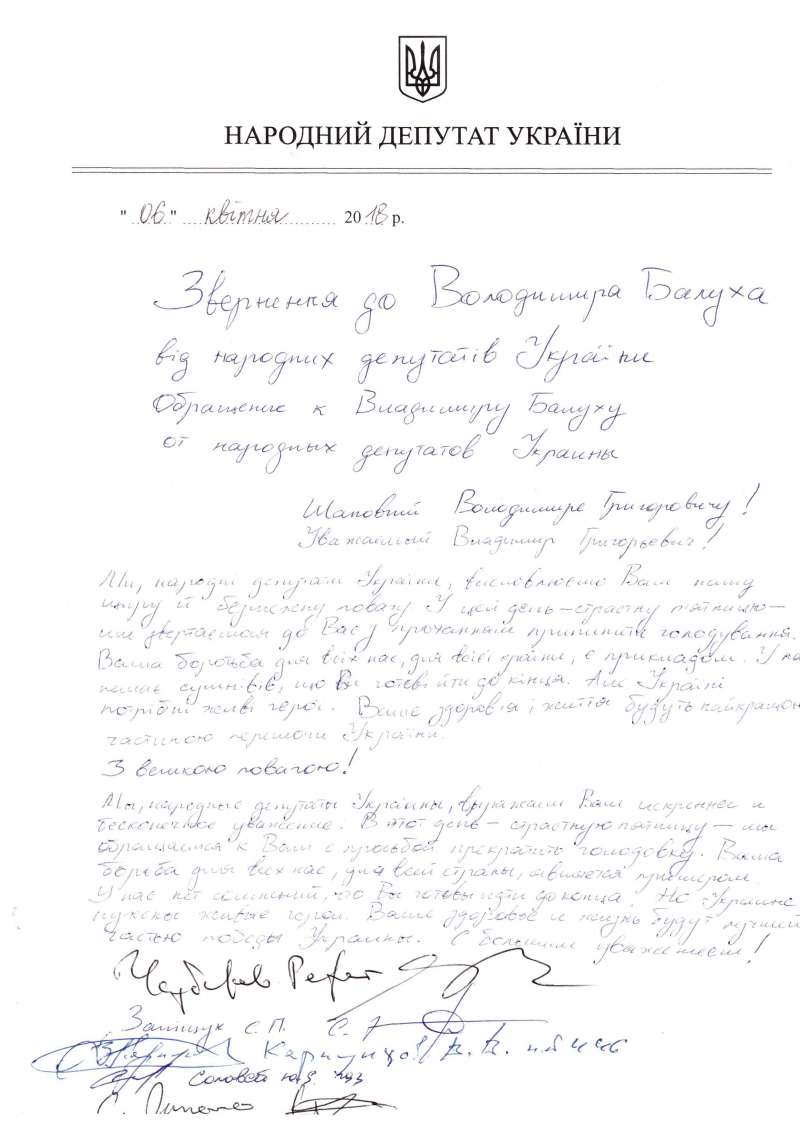 НАРОДНИЙ ДЕПУТАТ УКРАЇНИ
"06" квітня 2018 р.
Звернення до Володимира Балуха
від народних депутатів України
Обращение к Владимиру Балуху
от народных депутатов Украины
Шановний Володимире Григоровичу!
Уважаемый Владимир Григорьевич!
Ми, народні депутати України, висловлюємо Вам нашу
щиру й безмежну повагу. У цей день – страсну п'ятницю –
ми звертаємося до Вас з проханням припинити голодування.
Ваша боротьба для всіх нас, для всієї країни, є прикладом. У на
немає сумнівів, що Ви готові йти до кінця. Але Україні
потрібні живі герої. Ваше здоров'я і життя будуть найкращою
частиною перемоги України.
З великою повагою!
Мы, народные депутаты Украины, выражаем Вам искреннее и
бесконечное уважение. В этот день – страстную пятницу – мы
обращаемся к Вам с просьбой прекратить голодовку. Ваша
борьба для всех нас, для всей страны, является примером.
У нас нет сомнений, что Вы готовы идти до конца. Но Украине
нужны живые герои. Ваше здоровье и жизнь будут лучшей
частью победы Украины. С большим уважением!
Чубаров Рефат
Заліщук С.П.
В. В.
Соловей
С.